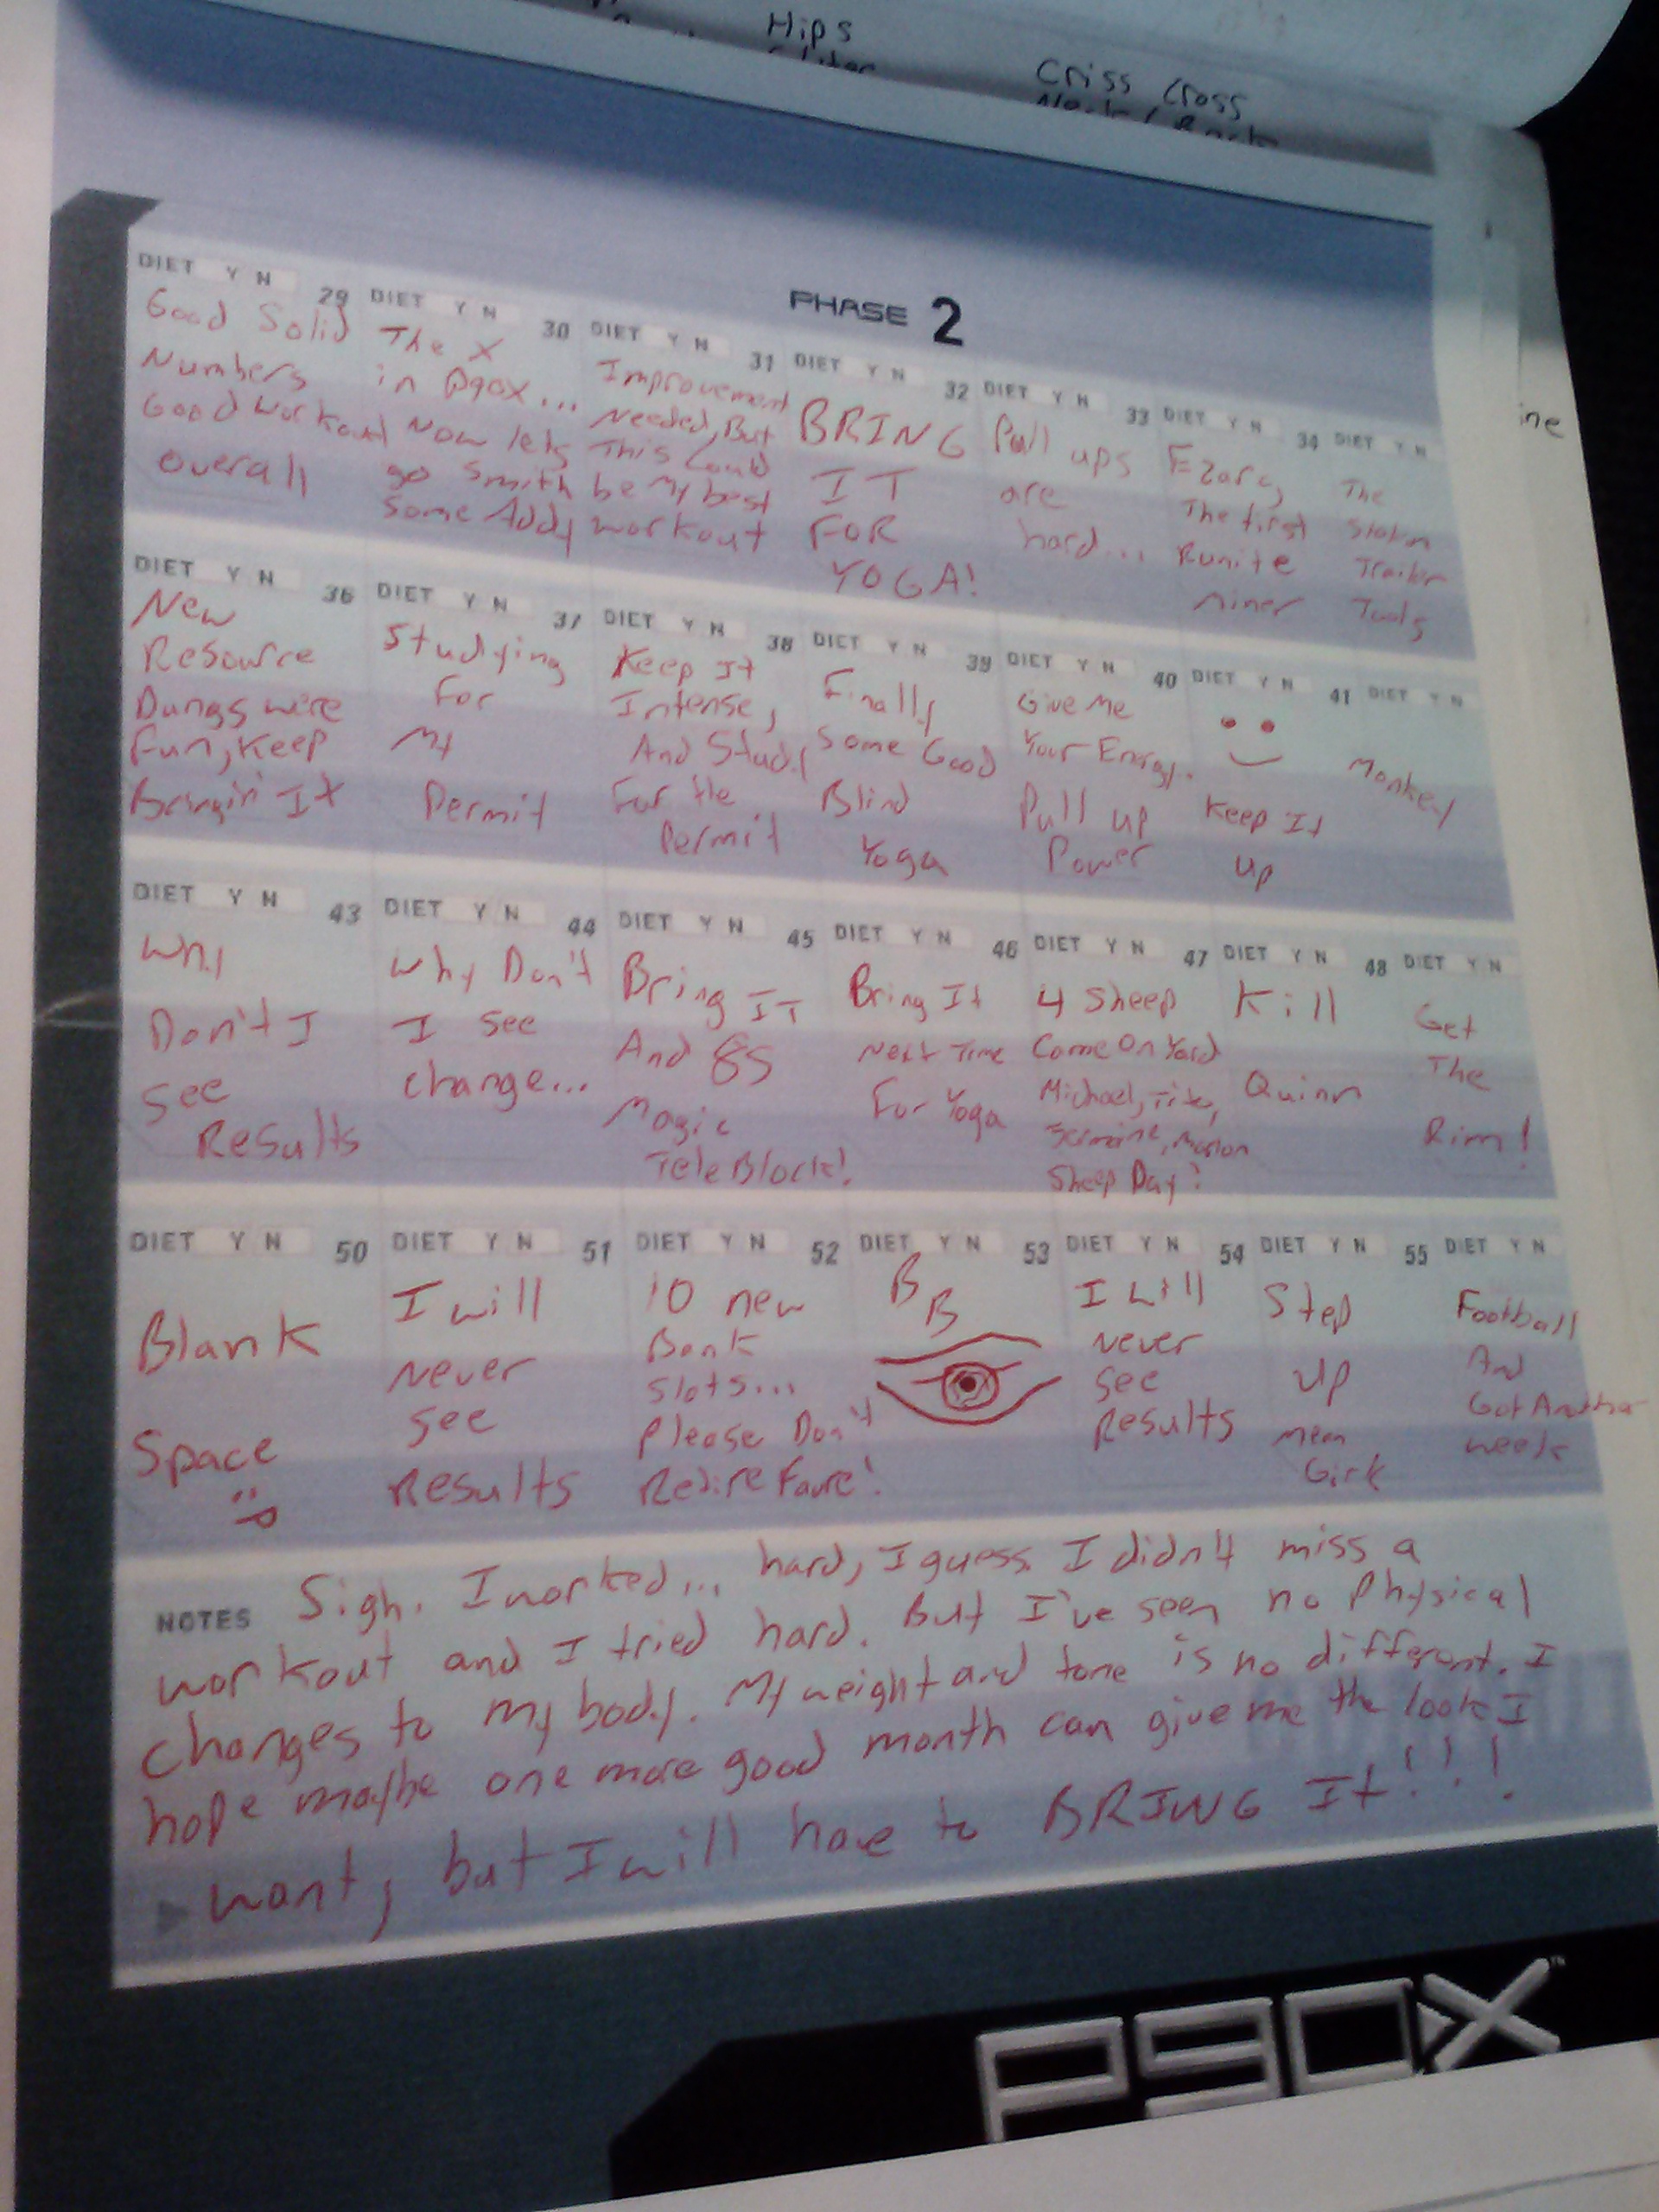 Hips
Criss Cross
ine
PHASE 2
DIET Y N 29
Good Solid
Numbers
Good Workout
Overall
DIET Y N 30
The X
in P90X...
Now lets
go smith
Some Addy
DIET Y N 31
Improvement
Needed, But
This Could
be My best
workout
DIET Y N 32
BRING
IT
FOR
YOGA!
DIET Y N 33
Pull ups
are
hard...
DIET Y N 34
The first
Runite
miner
DIET Y N
The
Stolen
Trailer
Tools
DIET Y N 36
New
Resource
Dungs were
Fun, Keep
Bringin' It
DIET Y N 37
Studying
For
My
Permit
DIET Y N 38
Keep It
Intense,
And Study
For the
Permit
DIET Y N 39
Finally
Some Good
Blind
Yoga
DIET Y N 40
Give Me
Your Energy.
Pull up
Power
DIET Y N 41
Keep It
up
DIET Y N
Monkey
DIET Y N 43
Why
Don't I
see
Results
DIET Y N 44
Why Don't
I see
change...
DIET Y N 45
Bring IT
And 85
Magic
TeleBlock!
DIET Y N 46
Bring It
Next Time
For Yoga
DIET Y N 47
4 Sheep
Come On Yard
Michael, Tito,
Jermaine, Marlon
Sheep Day!
DIET Y N 48
Kill
Quinn
DIET Y N
Get
The
Rim!
DIET Y N 50
Blank
Space
:P
DIET Y N 51
I will
Never
see
Results
DIET Y N 52
10 new
Bank
slots...
Please Don't
Retire Favre!
DIET Y N 53
B
B
DIET Y N 54
I will
Never
see
Results
DIET Y N 55
Step
up
mem
DIET Y N
Football
And
Got Another
week
NOTES Sigh. I worked... hard, I guess. I didn't miss a
workout and I tried hard. But I've seen no physical
changes to my body. My weight and tone is no different. I
hope maybe one more good month can give me the look I
want, but I will have to BRING It!!!
P90X™